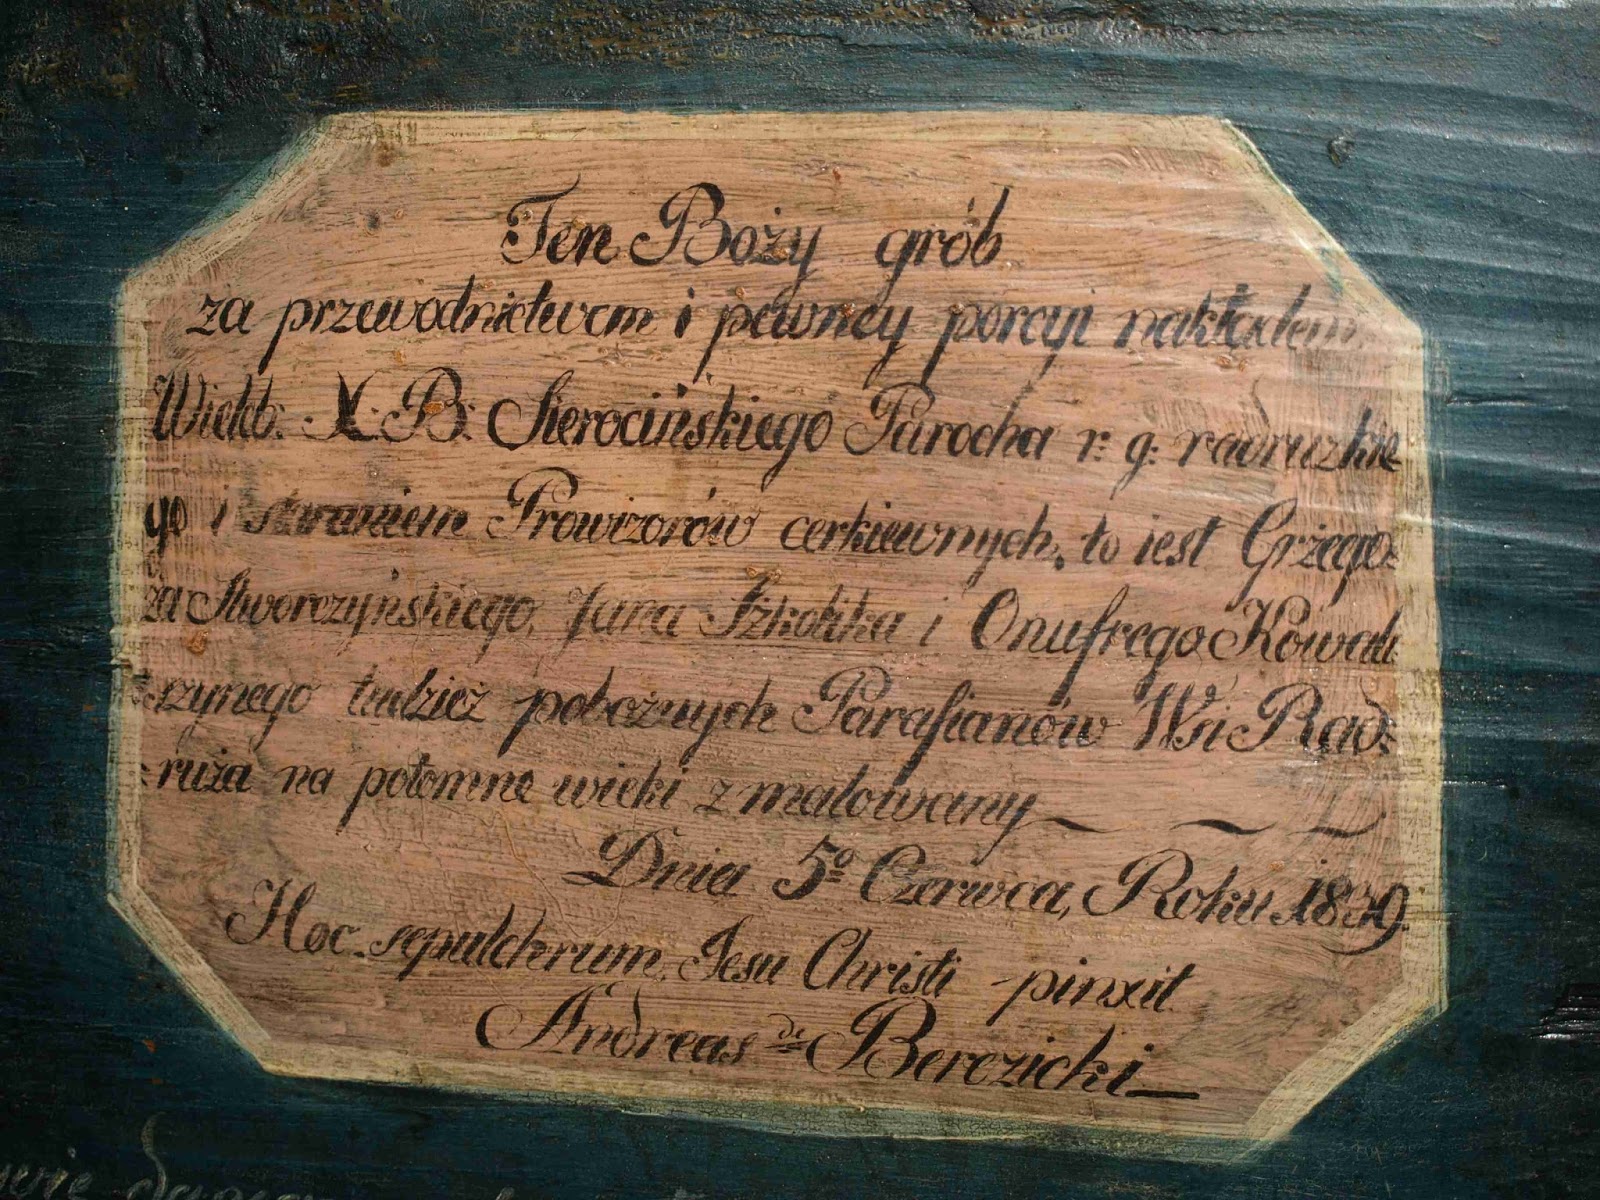 Ten Boży grób
za przewodnictwem i pewney porcyi nakładem
Wieleb: X. B: Sierocińskiego Parocha r: g: radruzkie
go i staraniem Prowizorów cerkiewnych, to iest Grzego:
rza Stworczyńskiego, Jana Szkolika i Onufrego Kowal
:rzynego tudzież pobożnych Parafianów Wsi Rad:
:ruża na potomne wieki zmalowany
Dnia 5º Czerwca, Roku 1839.
Hoc sepulchrum Jesu Christi pinxit
Andreas de Berezicki